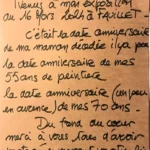 venus à mon exposition
au 16 Mars
C'était la date anniversaire
de ma maman décédée il y a
la date anniversaire de mes
55 ans de peinture
la date anniversaire (un peu
en avance) de mes 70 ans.
Du fond du cœur
merci à vous tous d'avoir